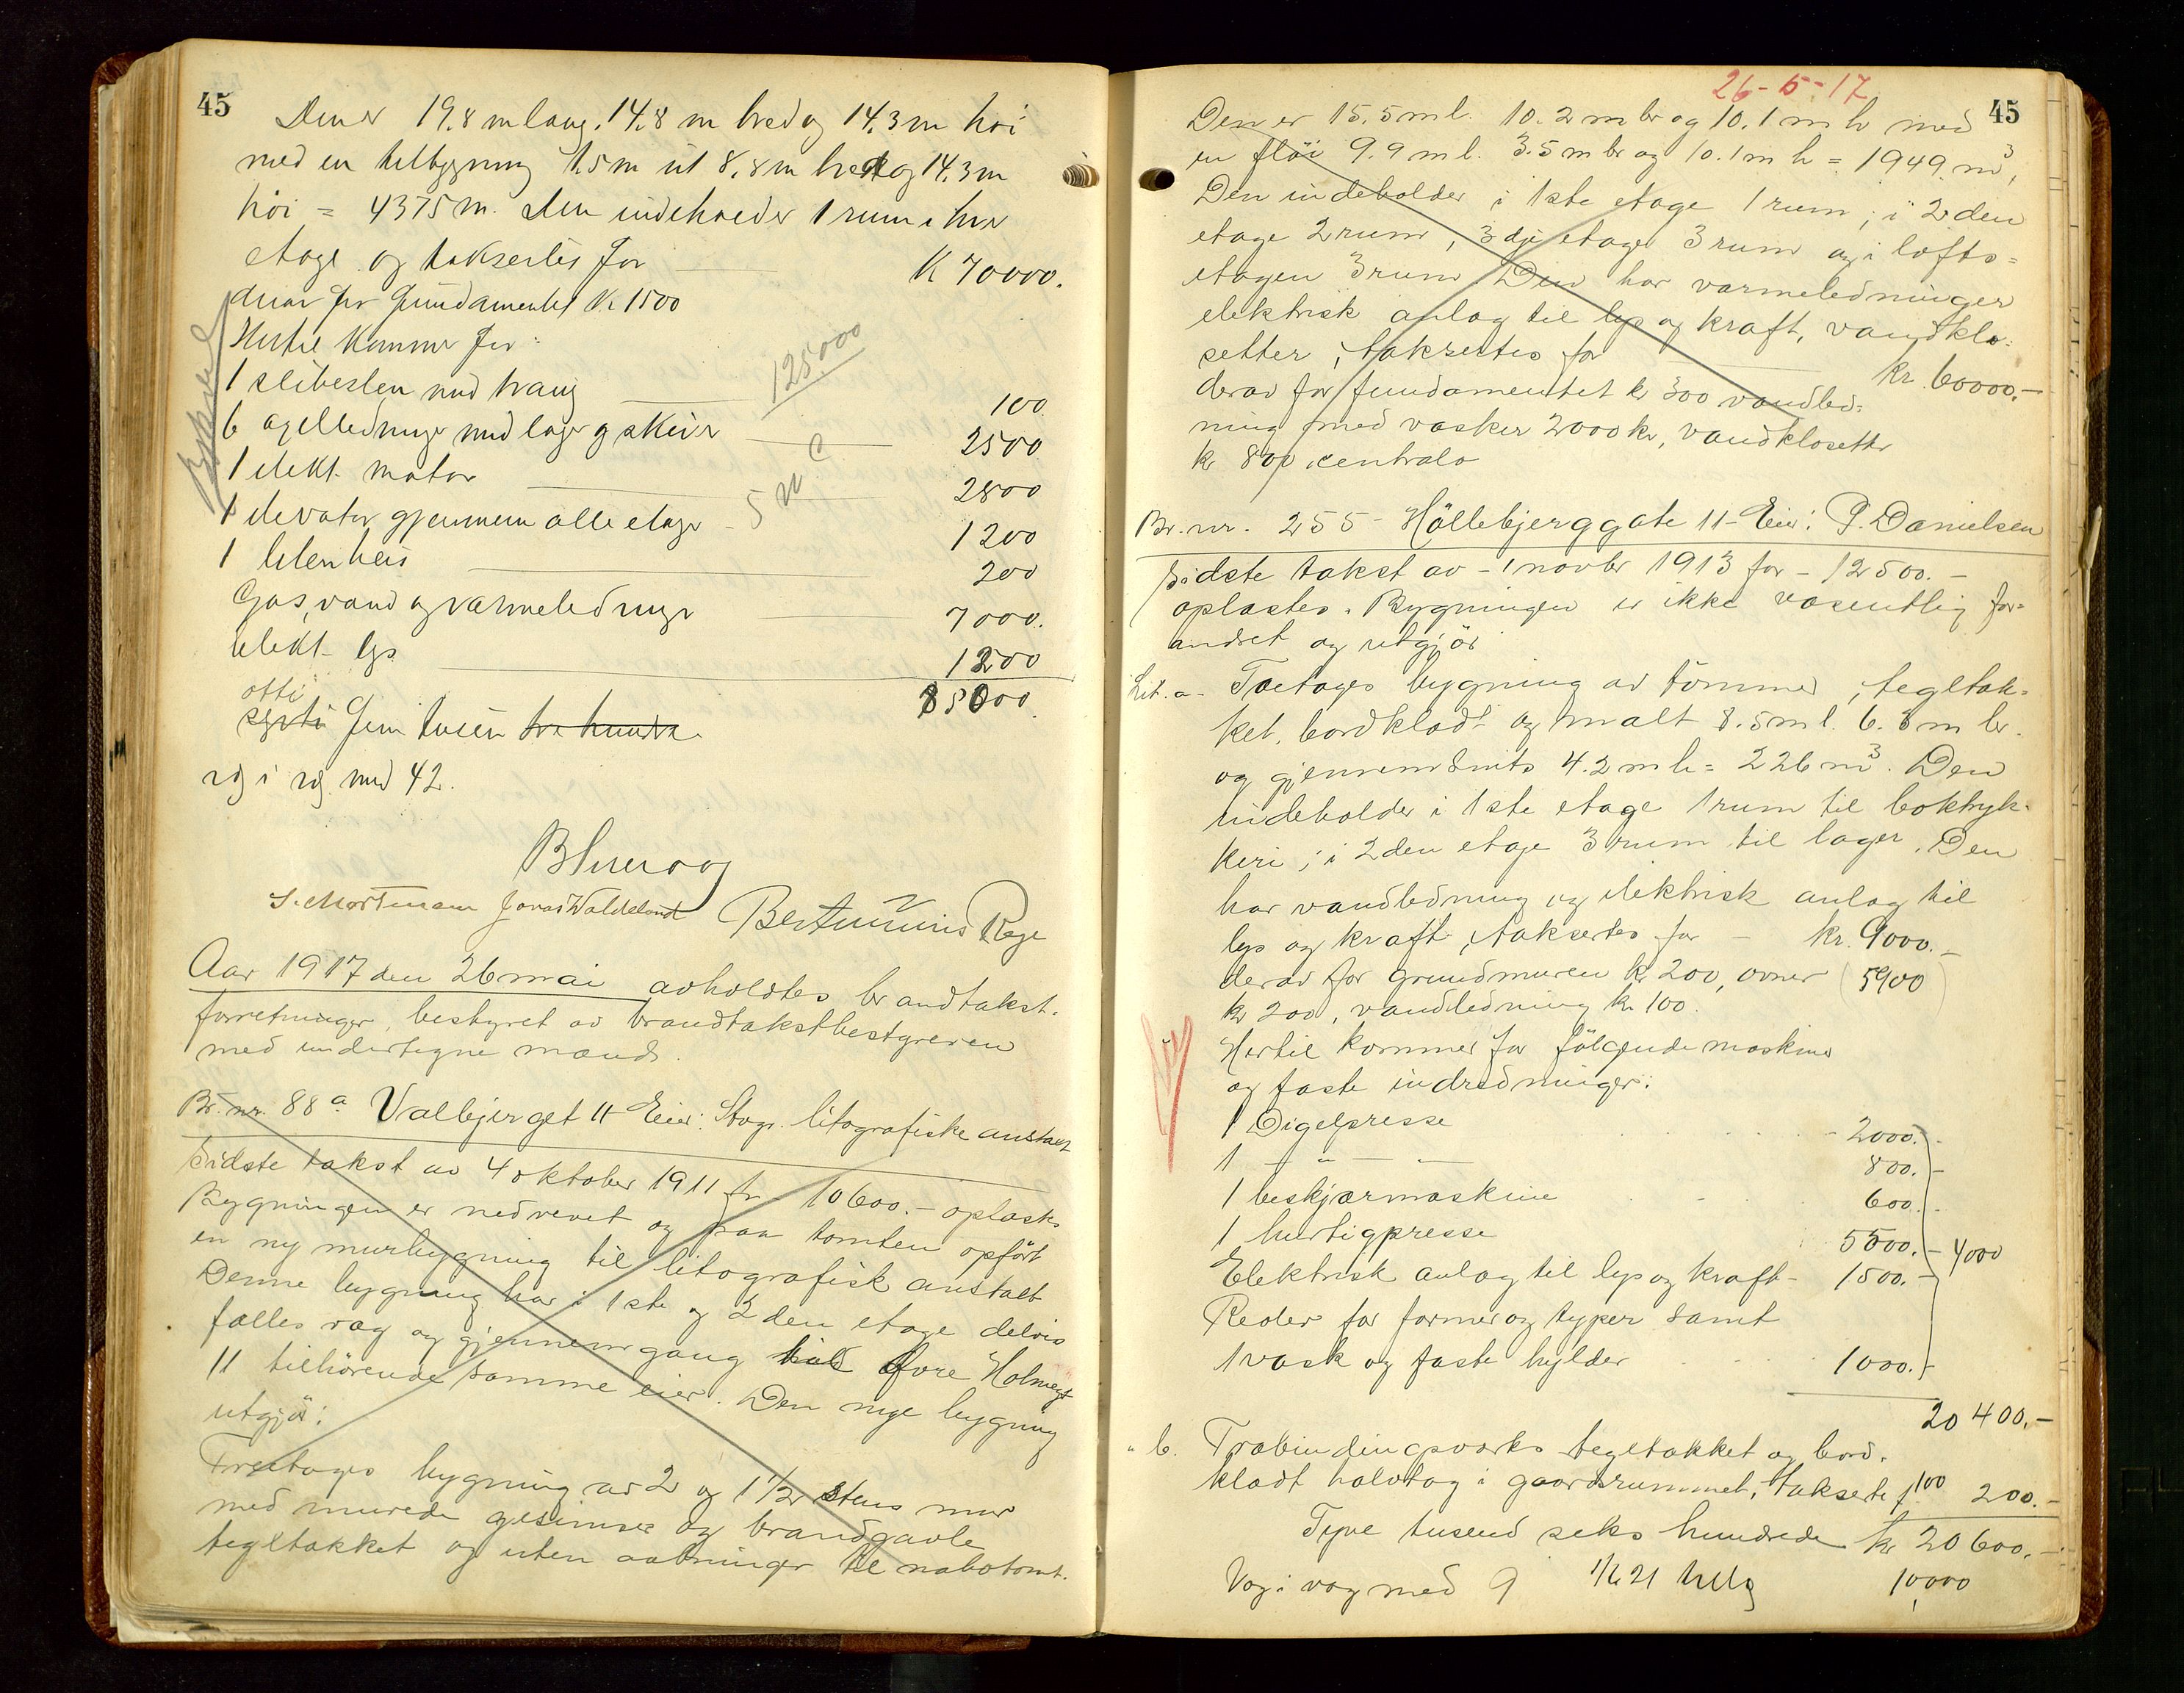 45
Den er 19.8 m lang, 14.8 m bred og 14.3 m høi
med en tilbygning 1.5 m ut 8.8 m bredt og 14.3 m
høi = 4375 m. Den indeholder 1 rum i hver
etage og takseres for K 70000.
derav for fundamentet K 1500
Hertil kommer for:
125000
1 slibesten med traug 100
6 axelledninger med lager og skiver 2500
1 elekt. motor 2800
1 elevator gjennem alle etager 1200
1 liten heis 200
Gas, vand og varmeledninger 7000.
elekt. lys 1200
85000.
otti
fem tusen to hundre
væg i væg med 42.
S. Mortensen Jonas Waldeland
Aar 1917 den 26 mai avholdtes brandtakst-
forretninger, bestyret av brandtakstbestyreren
med undertegne mænd.
Br. nr. 88 a Valbjerget 11 Eier: Stvgr. litografiske anstalt
Sidste takst av 4 oktober 1911 for 10600.- oplæstes
Bygningen er nedrevet og paa tomten opført
en ny murbygning til litografisk anstalt
Denne bygning har i 1ste og 2den etage delvis
fælles væg og gjennemgang til Øvre Holmegt
11 tilhørende samme eier. Den nye bygning
utgjør:
Treetages bygning av 2 og 1 1/2 stens mur
med murede gesimser og brandgavle
tegltækket og uten aabninger til nabotomt.
26-5-17
45
Den er 15.5 m l. 10.2 m br og 10.1 m h med
en fløi 9.9 m l. 3.5 m br og 10.1 m h = 1949 m3,
Den indeholder i 1ste etage 1 rum; i 2den
etage 2 rum, 3dje etage 3 rum og i lofts=
etagen 3 rum. Den har varmeledninger
elektrisk anlæg til lys og kraft, vandklo=
setter, takseres for kr. 60000.-
derav for fundamentet kr 300 vandled=
ning med vasker 2000 kr, vandklosetter
kr 800 centrale
Br. nr. 255 - Høllebjerggate 11 - Eier: P. Danielsen
Sidste takst av - 1 novbr 1913 for - 12500.-
oplæstes. Bygningen er ikke væsentlig for=
andret og utgjør
Lit. a - Toetages bygning av tømmer, tegltæk=
ket, bordklædt og malt 8.5 m l. 6.3 m br.
og gjennemsnits 4.2 m h = 226 m3. Den
indeholder i 1ste etage 1 rum til boktryk=
keri; i 2den etage 3 rum til lager. Den
har vandledning og elektrisk anlæg til
lys og kraft, takseres for - kr. 9000.-
derav for grundmuren kr 200, ovner (5900)
kr 200, vandledning kr 100.
Hertil kommer for følgende maskiner
og faste indredninger:
1 Digelpresse 2000.-
1 - " - " - 800.-
1 beskjærmaskine 600.-
1 hurtigpresse 5500.- 4000
Elektrisk anlæg til lys og kraft - 1500.-
Reoler for former og typer samt
1 vask og faste hylder 1000.-
20400.-
" b. Træbindingsverks tegltækket og bord-
klædt halvtag i gaardsrummet, takseres f. 100 200.-
Tyve tusend seks hundrede kr 20600.-
Væg i væg med 9 1/6 21 10,000